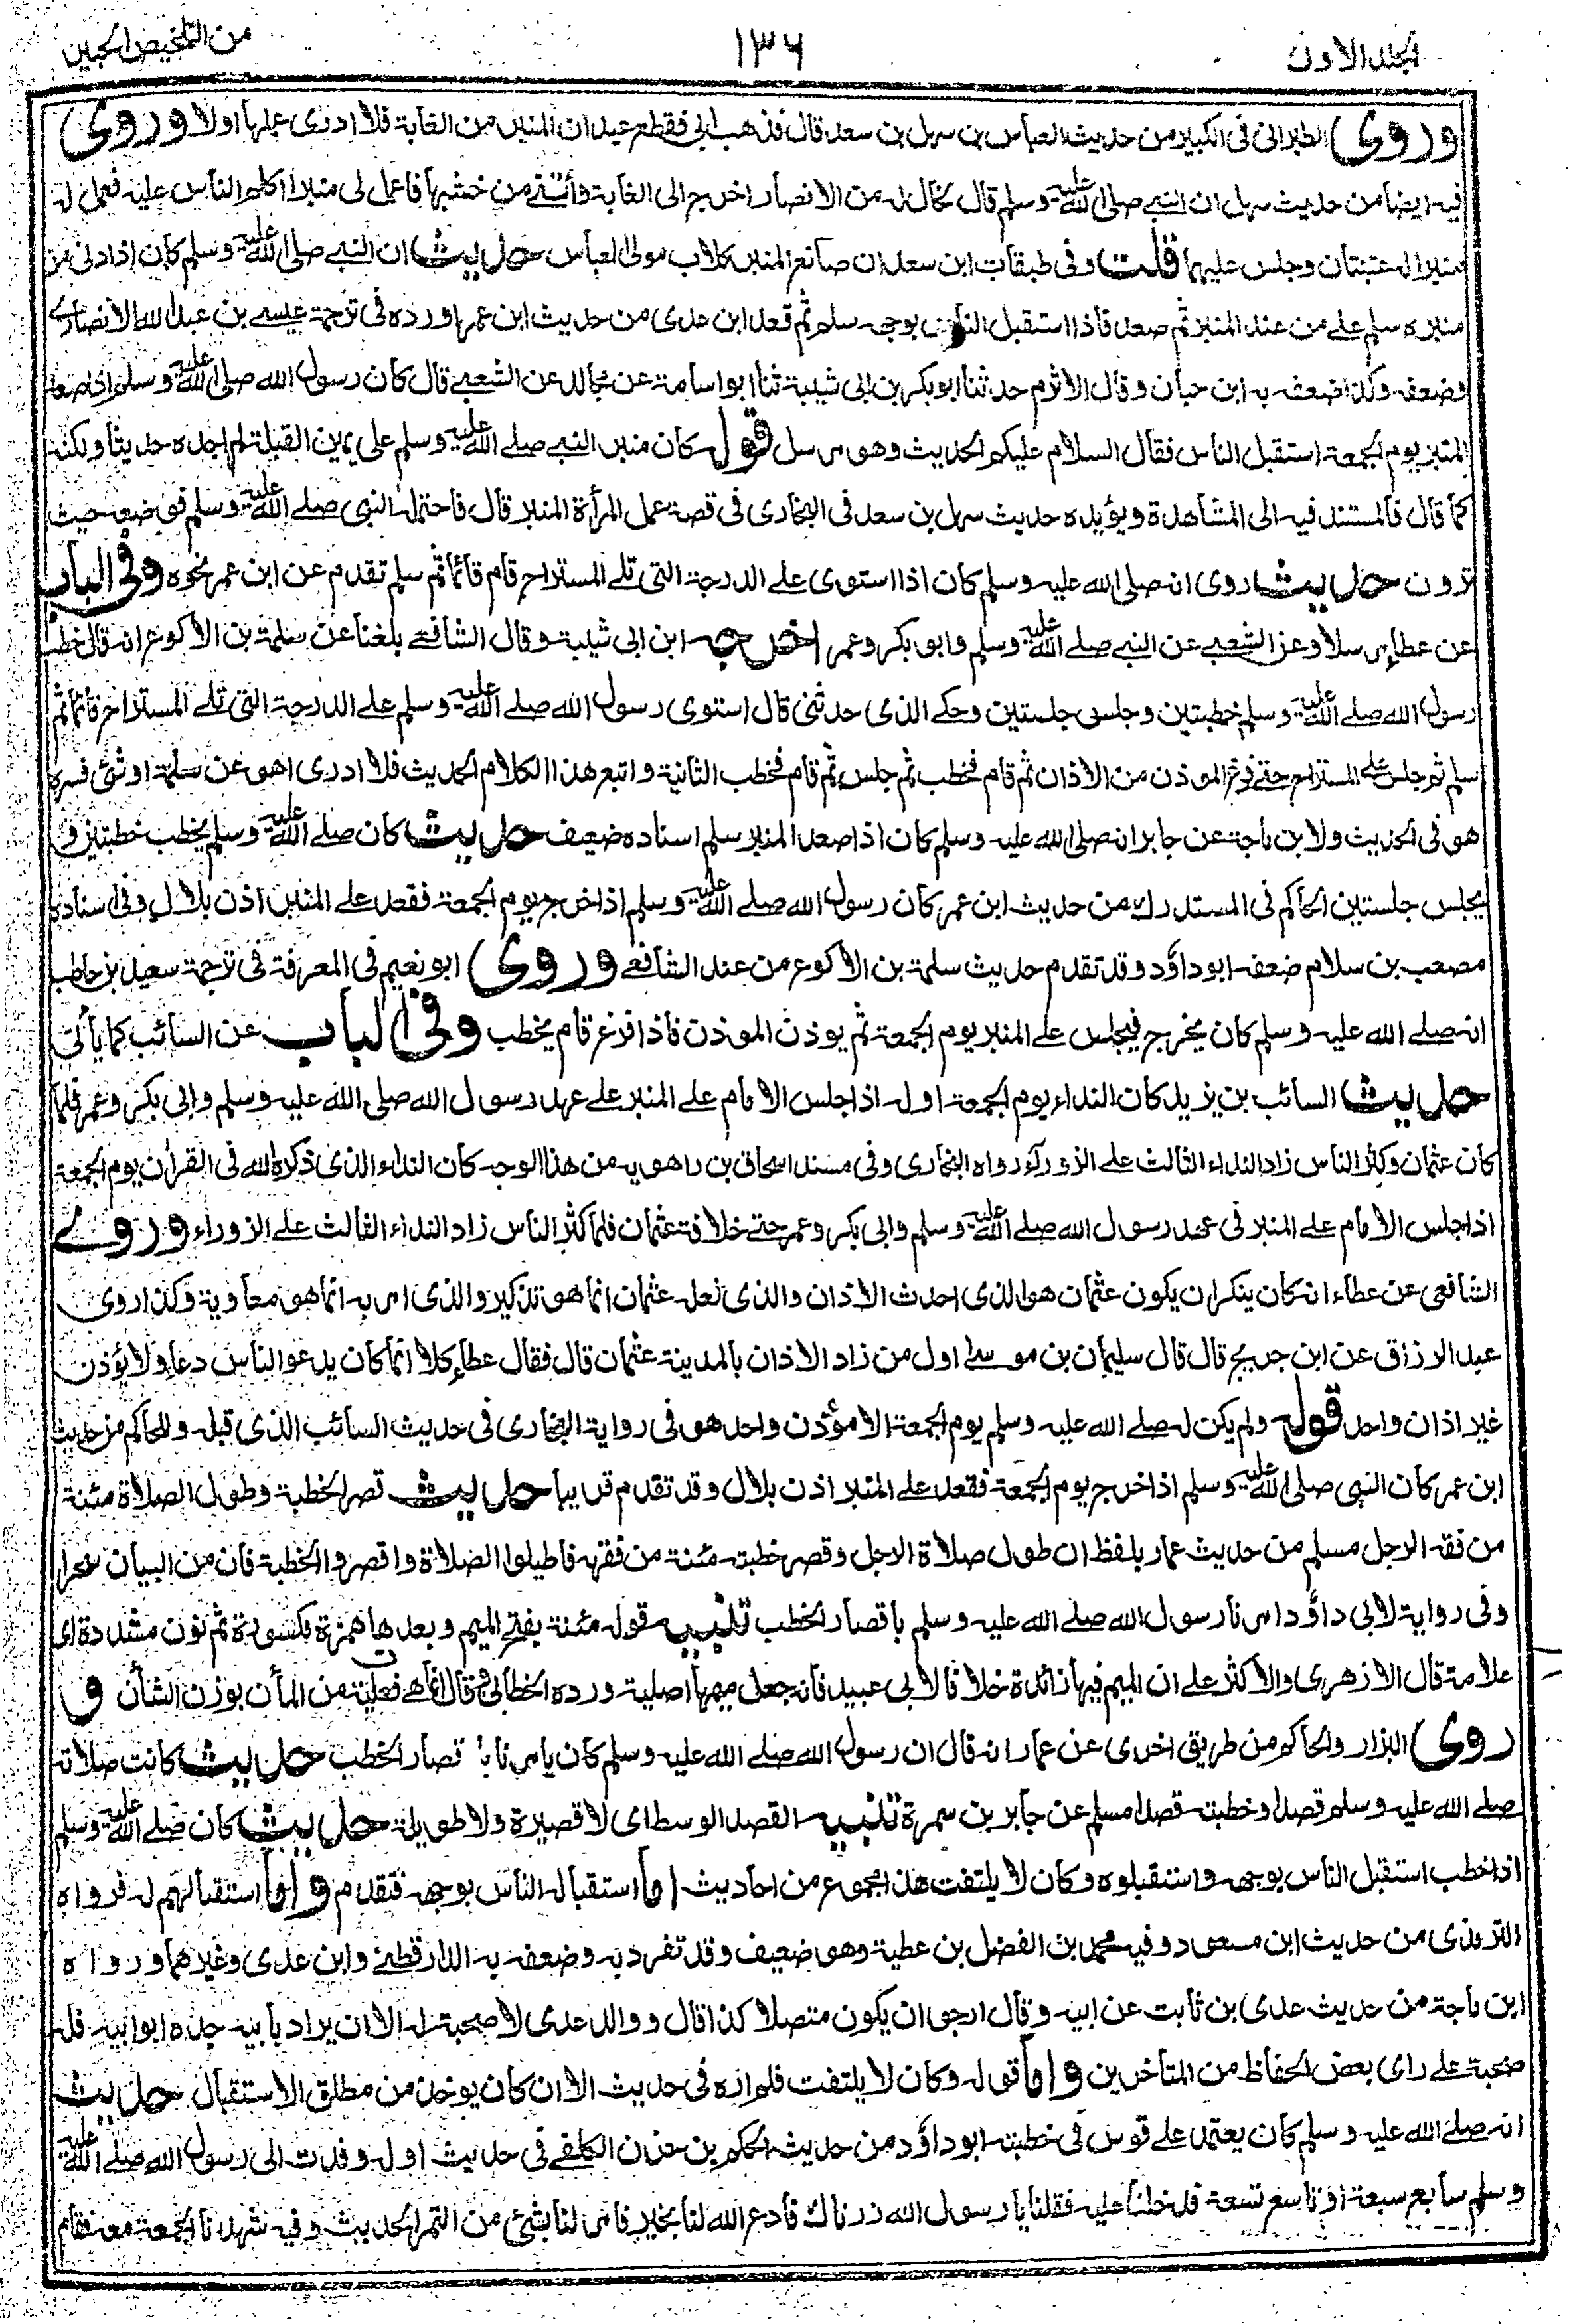 الجلد الاول
۱۳۶
من التلخيص الحبير
وروى الطبرانى فى الكبير من حديث العباس بن سهل بن سعد قال فذهب ابى فقطع عيدان المنبر من الغابة فلا ادرى عملها اولا وروى
فيه ايضا من حديث سهل ان النبى صلى الله عليه وسلم قال لخال له من الانصار اخرج الى الغابة وأتنى من خشبها فاعمل لى منبرا اكلم الناس عليه فعمل له
منبرا له عتبتان وجلس عليهما قلت وفى طبقات ابن سعد ان صانع المنبر كلاب مولى العباس حديث ان النبى صلى الله عليه وسلم كان اذا دنى من
منبره سلم على من عند المنبر ثم صعد فاذا استقبل الناس بوجهه سلم ثم قعد ابن عدى من حديث ابن عمر اورده فى ترجمة عيسى بن عبد الله الانصارى
وضعفه وكذا ضعفه به ابن حبان وقال الاثرم حدثنا ابو بكر بن ابى شيبة ثنا ابو اسامة عن مجالد عن الشعبى قال كان رسول الله صلى الله عليه وسلم اذا صعد
المنبر يوم الجمعة استقبل الناس فقال السلام عليكم الحديث وهو مرسل قوله كان منبر النبى صلى الله عليه وسلم على يمين القبلة لم اجده حديثا ولكنه
كما قال فالمستند فيه الى المشاهدة ويؤيده حديث سهل بن سعد فى البخارى فى قصة عمل المرأة المنبر قال فاحتمله النبى صلى الله عليه وسلم فوضعه حيث
ترون حديث روى انه صلى الله عليه وسلم كان اذا استوى على الدرجة التى تلى المستراح قام قائما ثم سلم تقدم عن ابن عمر نحوه وفى الباب
عن عطاء مرسلا وعن الشعبى عن النبى صلى الله عليه وسلم وابو بكر وعمر اخرجه ابن ابى شيبة وقال الشافعى بلغنا عن سلمة بن الاكوع انه قال خطب
رسول الله صلى الله عليه وسلم خطبتين وجلس جلستين وحكى الذى حدثنى قال استوى رسول الله صلى الله عليه وسلم على الدرجة التى تلى المستراح قائما ثم
سلم ثم جلس على المستراح حتى فرغ المؤذن من الاذان ثم قام فخطب ثم جلس ثم قام فخطب الثانية واتبع هذا الكلام الحديث فلا ادرى اهو عن سلمة او شئ فسره
هو فى الحديث ولابن ماجة عن جابر انه صلى الله عليه وسلم كان اذا صعد المنبر سلم اسناده ضعيف حديث كان صلى الله عليه وسلم يخطب خطبتين و
يجلس جلستين الحاكم فى المستدرك من حديث ابن عمر كان رسول الله صلى الله عليه وسلم اذا خرج يوم الجمعة فقعد على المنبر اذن بلال وفى اسناده
مصعب بن سلام ضعفه ابو داؤد وقد تقدم حديث سلمة بن الاكوع من عند الشافعى وروى ابو نعيم فى المعرفة فى ترجمة سعيد بن حاطب
انه صلى الله عليه وسلم كان يخرج فيجلس على المنبر يوم الجمعة ثم يوذن الموذن فاذا فرغ قام يخطب وفى الباب عن السائب كما يأتى
حديث السائب بن يزيد كان النداء يوم الجمعة اوله اذا جلس الامام على المنبر على عهد رسول الله صلى الله عليه وسلم وابى بكر وعمر فلما
كان عثمان وكثر الناس زاد النداء الثالث على الزوراء رواه البخارى وفى مسند اسحاق بن راهويه من هذا الوجه كان النداء الذى ذكره الله فى القرآن يوم الجمعة
اذا جلس الامام على المنبر فى عهد رسول الله صلى الله عليه وسلم وابى بكر وعمر حتى خلافة عثمان فلما كثر الناس زاد النداء الثالث على الزوراء وروى
الشافعى عن عطاء انه كان ينكر ان يكون عثمان هو الذى احدث الاذان والذى فعله عثمان انما هو تذكير والذى امر به انما هو معاوية وكذا روى
عبد الرزاق عن ابن جريج قال قال سليمان بن موسى اول من زاد الاذان بالمدينة عثمان قال فقال عطاء كلا انما كان يدعو الناس دعاء ولا يؤذن
غير اذان واحد قوله ولم يكن له صلى الله عليه وسلم يوم الجمعة الا مؤذن واحد هو فى رواية البخارى فى حديث السائب الذى قبله وللحاكم من حديث
ابن عمر كان النبى صلى الله عليه وسلم اذا خرج يوم الجمعة فقعد على المنبر اذن بلال وقد تقدم قريبا حديث قصر الخطبة وطول الصلاة مئنة
من فقه الرجل مسلم من حديث عمار بلفظ ان طول صلاة الرجل وقصر خطبته مئنة من فقهه فاطيلوا الصلاة واقصروا الخطبة فان من البيان سحرا
وفى رواية لابى داؤد امرنا رسول الله صلى الله عليه وسلم باقصار الخطب تنبيه قوله مئنة بفتح الميم وبعدها همزة مكسورة ثم نون مشددة اى
علامة قال الازهرى والاكثر على ان الميم فيها زائدة خلافا لابى عبيد فانه جعل ميمها اصلية ورده الخطابى وقال انما هى فعلية من المأن بوزن الشأن و
روى البزار والحاكم من طريق اخرى عن عمار انه قال ان رسول الله صلى الله عليه وسلم كان يامرنا باقصار الخطب حديث كانت صلاته
صلى الله عليه وسلم قصدا وخطبته قصدا مسلم عن جابر بن سمرة تنبيه القصد الوسط اى لا قصيرة ولا طويلة حديث كان صلى الله عليه وسلم
اذا خطب استقبل الناس بوجهه واستقبلوه وكان لا يلتفت هذا مجموع من احاديث اما استقباله الناس بوجهه فتقدم واما استقبالهم له فرواه
الترمذى من حديث ابن مسعود وفيه محمد بن الفضل بن عطية وهو ضعيف وقد تفرد به وضعفه به الدارقطنى وابن عدى وغيرهما ورواه
ابن ماجة من حديث عدى بن ثابت عن ابيه وقال ارجو ان يكون متصلا كذا قال ووالد عدى لا صحبة له الا ان يراد بابيه جده ابو ابيه فله
صحبة على راى بعض الحفاظ من المتأخرين واما قوله وكان لا يلتفت فلم اره فى حديث الا ان كان يوخذ من مطلق الاستقبال حديث
انه صلى الله عليه وسلم كان يعتمد على قوس فى خطبته ابو داؤد من حديث الحكم بن حزن الكلفى فى حديث اوله وفدت الى رسول الله صلى الله عليه
وسلم سابع سبعة او تاسع تسعة فدخلنا عليه فقلنا يا رسول الله زرناك فادع الله لنا بخير فامر لنا بشئ من التمر الحديث وفيه شهدنا الجمعة معه فقام